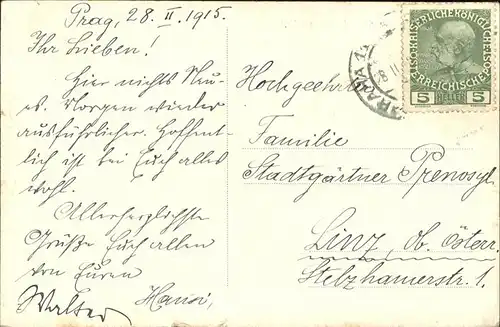 Prag, 28. II. 1915.
Ihr Lieben!
Hier nichts Neu-
es. Morgen wieder
ausführlicher. Hoffent-
lich ist bei Euch alles
wohl.
Allerherzlichste
Grüße Euch allen
von Euren
Hansi,
Walter
Hochgeehrte
Familie
Stadtgärtner Prenosyl
Linz, ob. Österr.
Stelzhamerstr. 1.
KAISERLICHE KÖNIGLICHE
ÖSTERREICHISCHE POST
5 HELLER 5
PRAHA 1
28 II